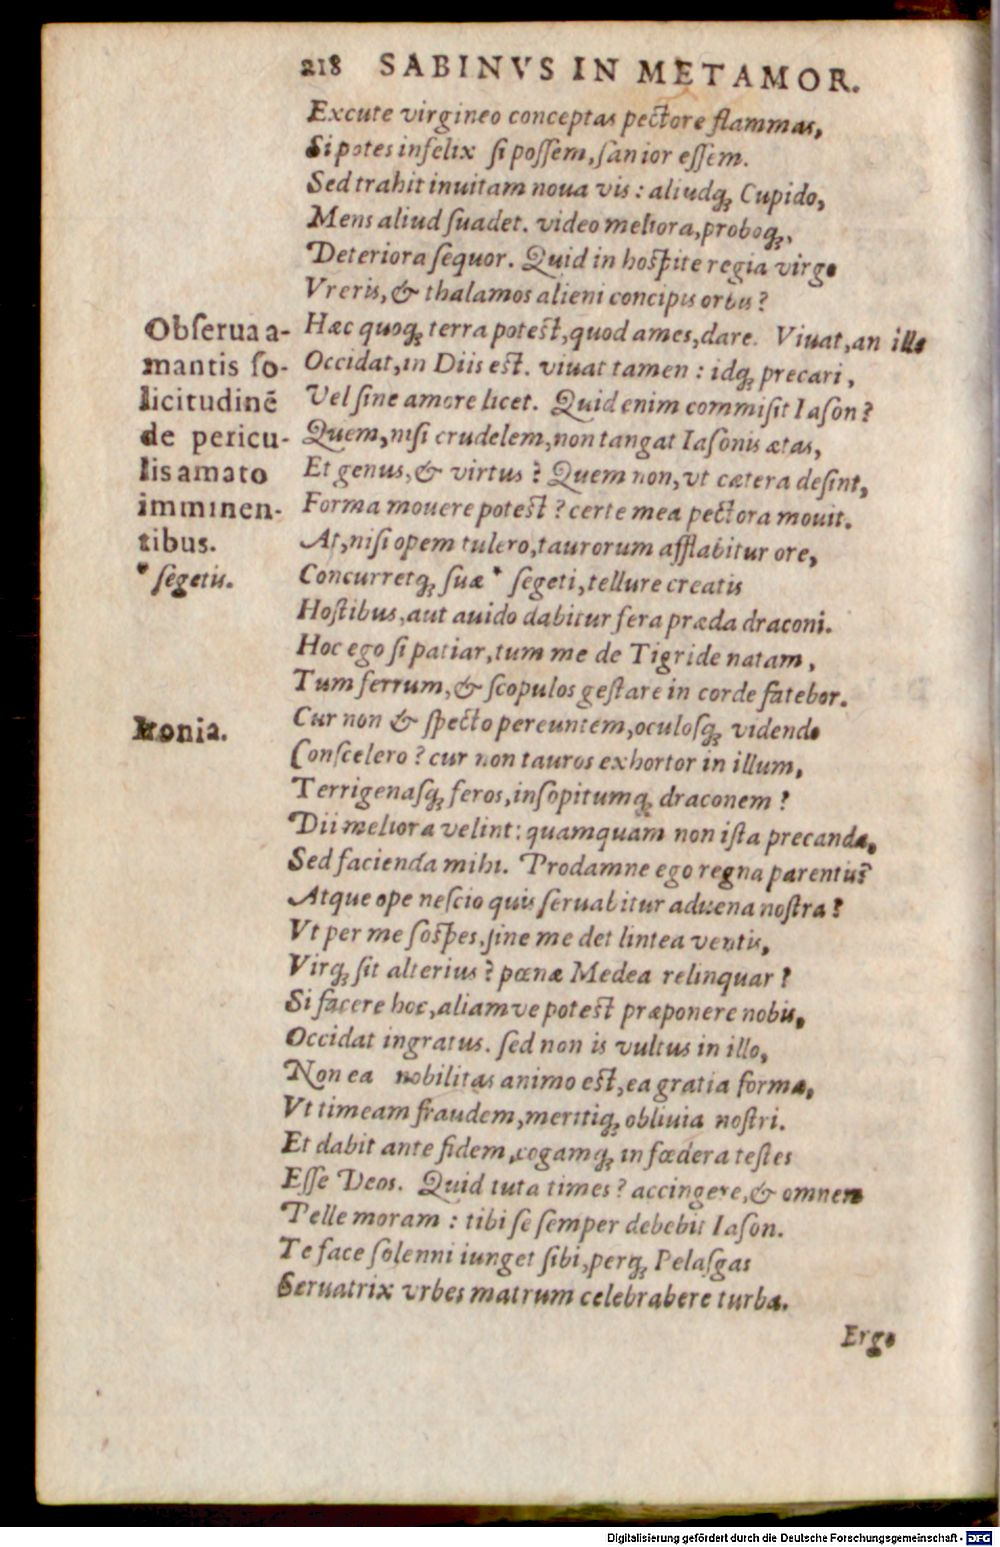 218 SABINVS IN METAMOR.
Excute virgineo conceptas pectore flammas,
Si potes infelix si poſſem, ſanior eſſem.
Sed trahit inuitam noua vis : aliudq́; Cupido,
Mens aliud ſuadet. video meliora, proboq́;,
Deteriora ſequor. Quid in hoſpite regia virgo
Vreris, & thalamos alieni concipis orbis?
Hæc quoq́; terra poteſt, quod ames, dare. Viuat, an ille
Occidat, in Diis eſt. viuat tamen : idq́; precari,
Vel ſine amore licet. Quid enim commiſit Iaſon?
Quem, niſi crudelem, non tangat Iaſonis ætas,
Et genus, & virtus? Quem non, vt cætera deſint,
Forma mouere poteſt? certe mea pectora mouit.
At, niſi opem tulero, taurorum afflabitur ore,
Concurretq́; ſuæ * ſegeti, tellure creatis
Hoſtibus, aut auido dabitur fera præda draconi.
Hoc ego ſi patiar, tum me de Tigride natam,
Tum ferrum, & ſcopulos geſtare in corde fatebor.
Cur non & ſpecto pereuntem, oculoſq́; videndo
Conſcelero? cur non tauros exhortor in illum,
Terrigenaſq́; feros, inſopitumq́; draconem?
Dii meliora velint: quamquam non iſta precanda,
Sed facienda mihi. Prodamne ego regna parentis?
Atque ope neſcio quis ſeruabitur aduena noſtra?
Vt per me ſoſpes, ſine me det lintea ventis,
Virq́; ſit alterius? pœnæ Medea relinquar?
Si facere hoc, aliamve poteſt præponere nobis,
Occidat ingratus. ſed non is vultus in illo,
Non ea nobilitas animo eſt, ea gratia formæ,
Vt timeam fraudem, meritiq́; obliuia noſtri.
Et dabit ante fidem, cogamq́; in fœdera teſtes
Eſſe Deos. Quid tuta times? accingere, & omnem
Pelle moram : tibi ſe ſemper debebit Iaſon.
Te face ſolenni iunget ſibi, perq́; Pelaſgas
Seruatrix vrbes matrum celebrabere turba.
Ergo
Obſerua a-
mantis ſo-
licitudinē
de pericu-
lis amato
imminen-
tibus.
* ſegetis.
Ironia.
Digitalisierung gefördert durch die Deutsche Forschungsgemeinschaft - DFG